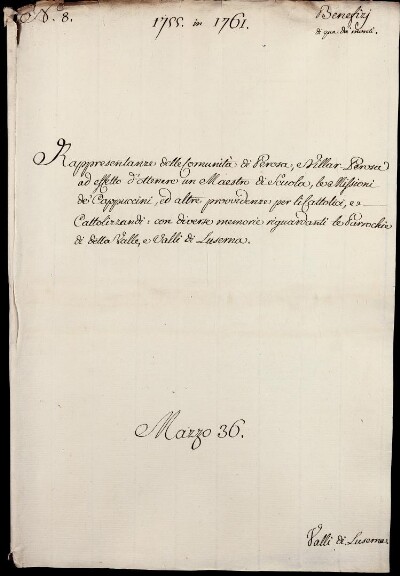 N.° 8.
1755. in 1761.
Benefizj
di qua da' monti.
Rappresentanze delle Comunità di Perosa, e Villar Perosa
ad effetto d'ottenere un Maestro di Scuola, le Missioni
de' Cappuccini, ed altre provvidenze per li Cattolici, e
Cattolizzandi: con diverse memorie riguardanti le Parrochie
di detta Valle, e Valli di Luserna.
Mazzo 36.
Valli di Luserna